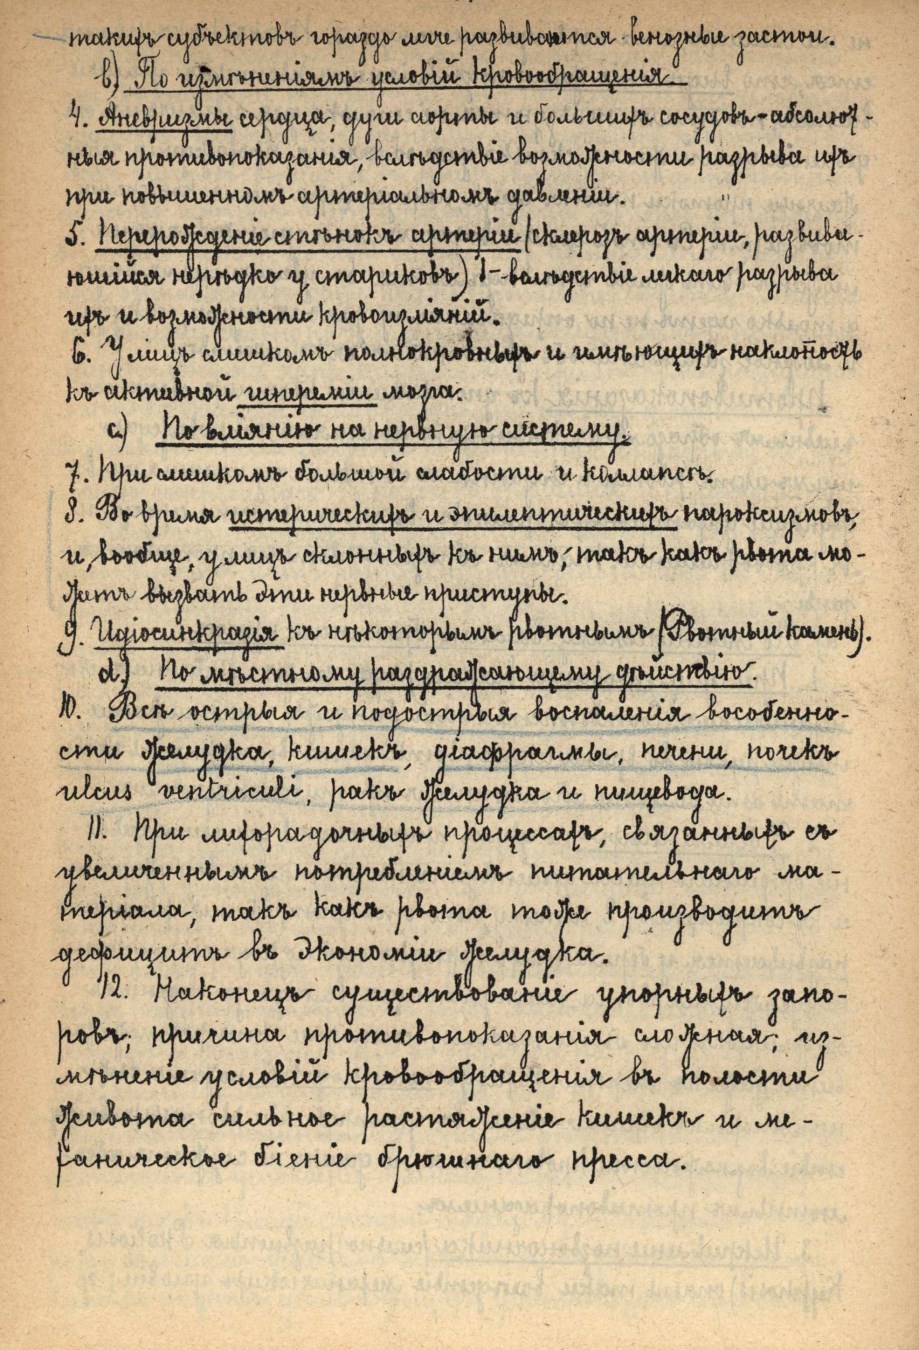 такихъ субъектовъ гораздо легче развиваются венозные застои.
b) По измѣненіямъ условій кровообращенія
4. Аневризмы сердца, дуги аорты и большихъ сосудовъ - абсолют-
ныя противопоказанія, вслѣдствіе возможности разрыва ихъ
при повышенномъ артеріальномъ давленіи.
5. Перерожденіе стѣнокъ артеріи (склерозъ артеріи, развива-
ющійся нерѣдко у стариковъ) - вслѣдствіе легкаго разрыва
ихъ и возможности кровоизліяній.
6. У лицъ слишкомъ полнокровныхъ и имѣющихъ наклонность
къ активной гипереміи мозга.
c) По вліянію на нервную систему.
7. При слишкомъ большой слабости и коллапсѣ.
8. Во время истерическихъ и эпилептическихъ пароксизмовъ,
и, вообще, у лицъ склонныхъ къ нимъ, такъ какъ рвота мо-
жетъ вызвать эти нервные приступы.
9. Идіосинкразія къ нѣкоторымъ рвотнымъ (Рвотный камень).
d.) По мѣстному раздражающему дѣйствію.
10. Всѣ острыя и подострыя воспаленія вособенно-
сти желудка, кишекъ, діафрагмы, печени, почекъ
ulcus ventriculi, ракъ желудка и пищевода.
11. При лихорадочныхъ процессахъ, связанныхъ съ
увеличеннымъ потребленіемъ питательнаго ма-
теріала, такъ какъ рвота тоже производитъ
дефицитъ въ экономіи желудка.
12. Наконецъ существованіе упорныхъ запо-
ровъ; причина противопоказанія сложная; из-
мѣненіе условій кровообращенія въ полости
живота сильное растяженіе кишекъ и ме-
ханическое біеніе брюшнаго пресса.